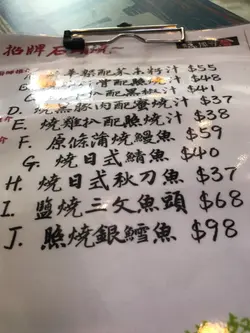 招牌石
$55
配 $48
扒配黑椒汁 $41
D. 燒黑豚肉配蜜燒汁 $37
E. 燒雞扒配照燒汁 $38
F. 原條蒲燒鰻魚 $59
G. 燒日式鯖魚 $40
H. 燒日式秋刀魚 $37
I. 鹽燒三文魚頭 $68
J. 照燒銀鱈魚 $98